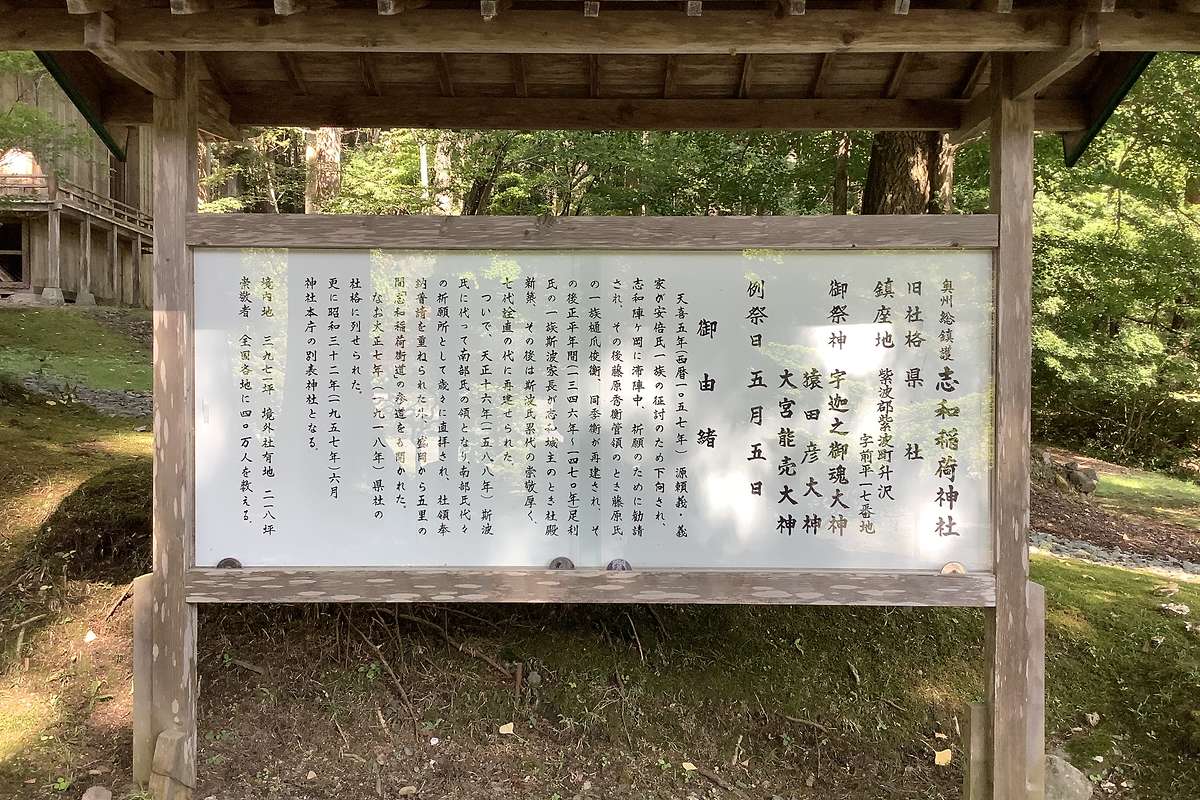 奥州総鎮護 志和稲荷神社
旧社格 県社
鎮座地 紫波郡紫波町升沢
字前平一七番地
御祭神 宇迦之御魂大神
猿田彦大神
大宮能売大神
例祭日 五月五日
御由緒
天喜五年(西暦一〇五七年)源頼義・義
家が安倍氏一族の征討のため下向され、
志和陣ヶ岡に滞陣中、祈願のために勧請
され、その後藤原秀衡管領のとき藤原氏
の一族樋爪俊衡、同季衡が再建され、そ
の後正平年間(一三四六年~一四七〇年)足利
氏の一族斯波家長が志和城主のとき社殿
新築、その後は斯波氏累代の崇敬厚く、
七代詮直の代に再建せられた。
ついで、天正十六年(一五八八年)斯波
氏に代って南部氏の領となり南部氏代々
の祈願所として歳々に直拝され、社領奉
納普請を重ねられた外、盛岡から五里の
間志和稲荷街道の参道をも開かれた。
なお大正七年(一九一八年)県社の
社格に列せられた。
更に昭和三十二年(一九五七年)六月
神社本庁の別表神社となる。
境内地 三九七坪 境外社有地 二一八坪
崇敬者 全国各地に四〇万人を数える。